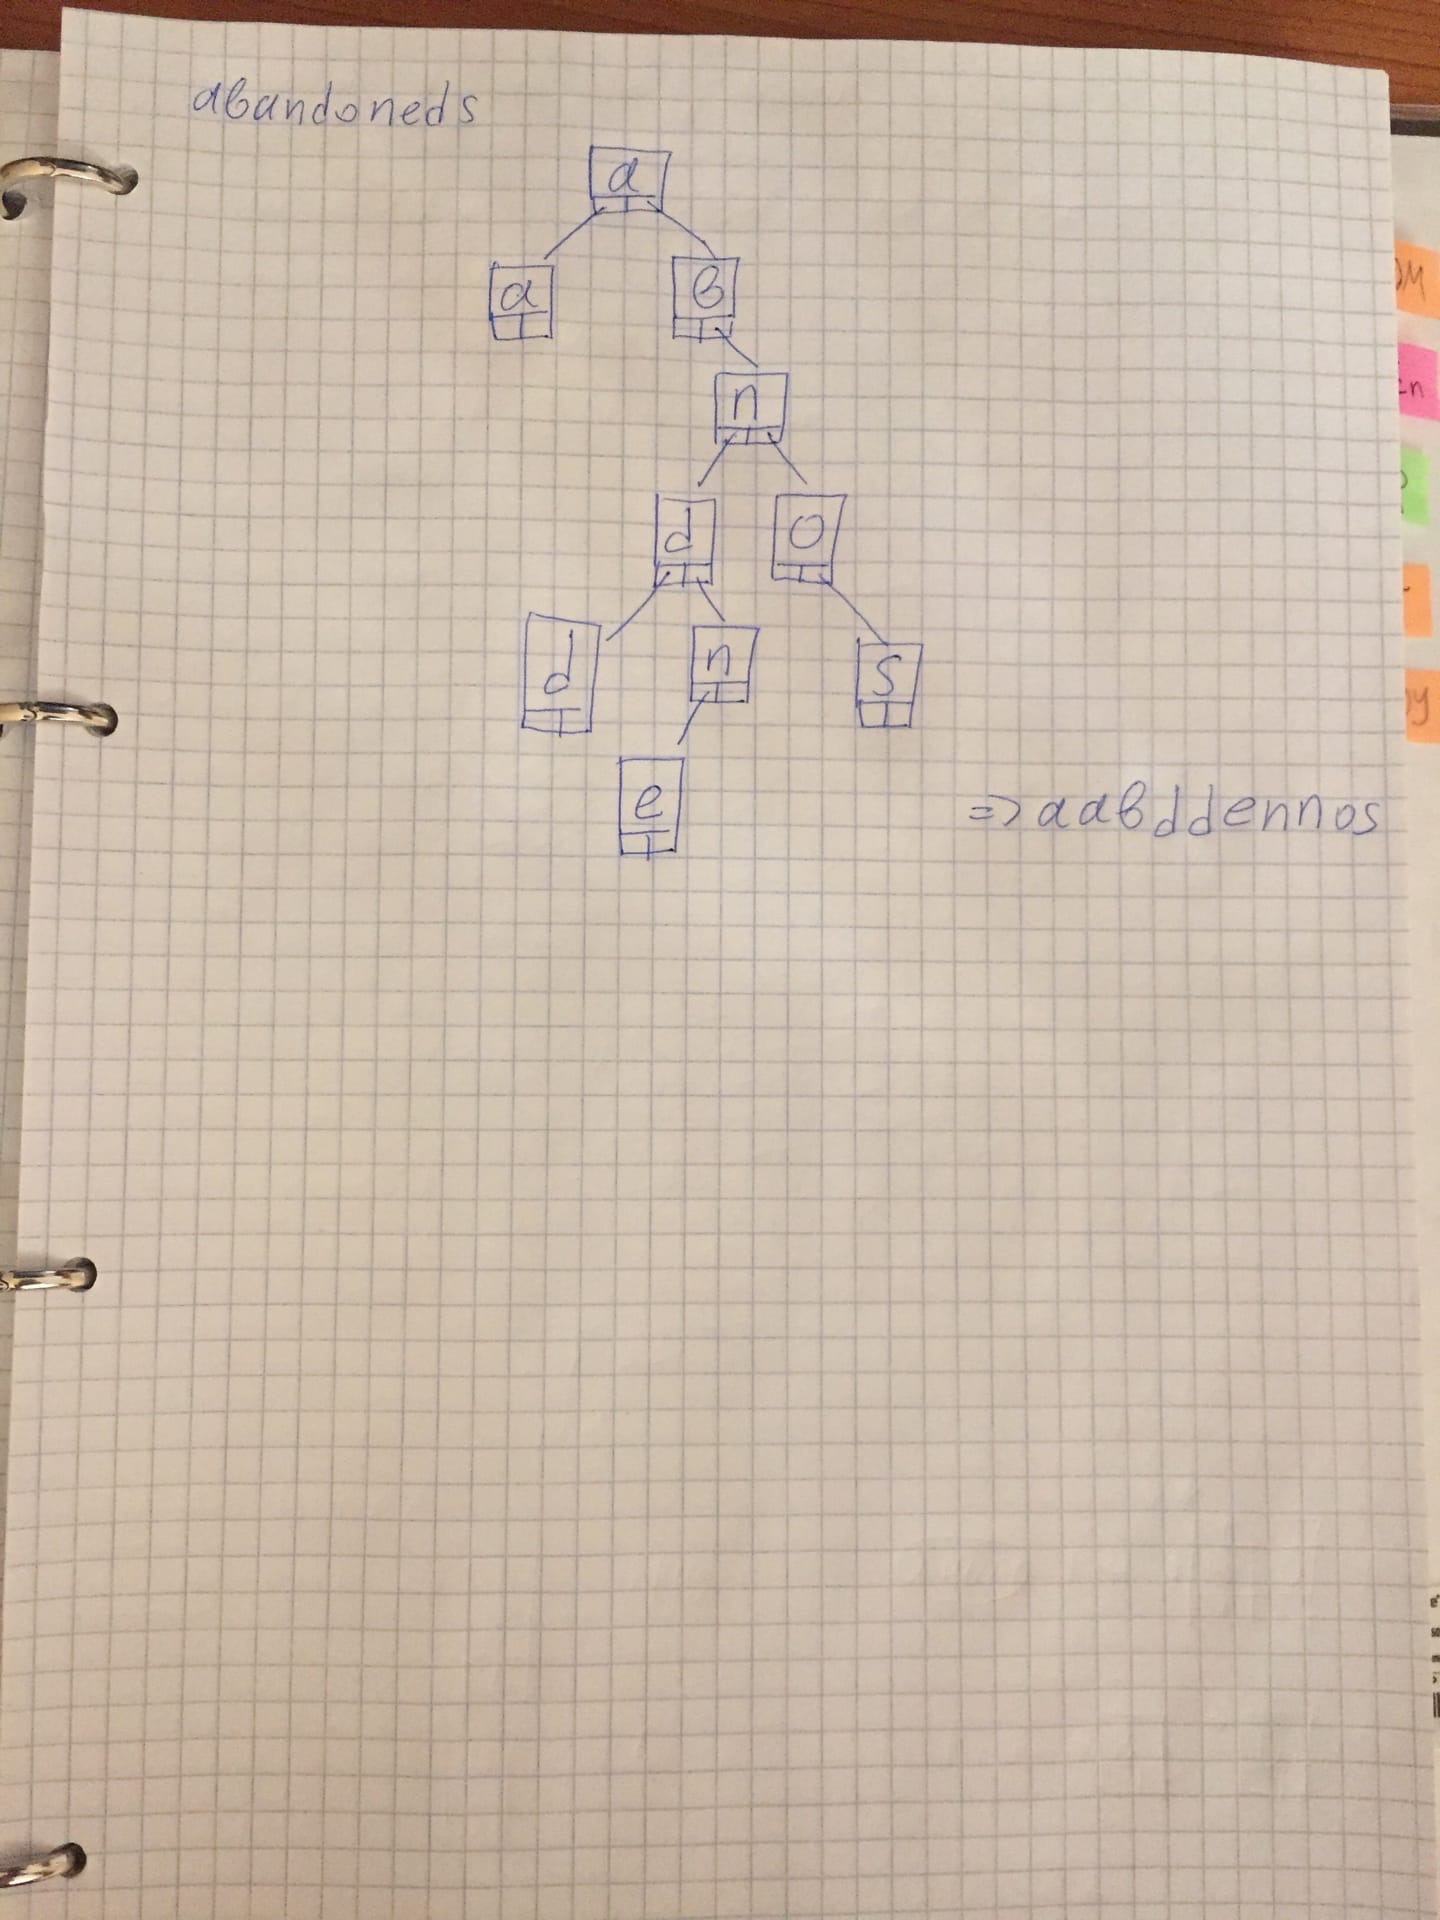 abandoneds
a
a b
n
d o
d n s
e
=> aabddennos